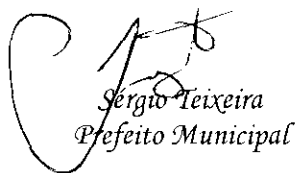 Sérgio Teixeira
Prefeito Municipal